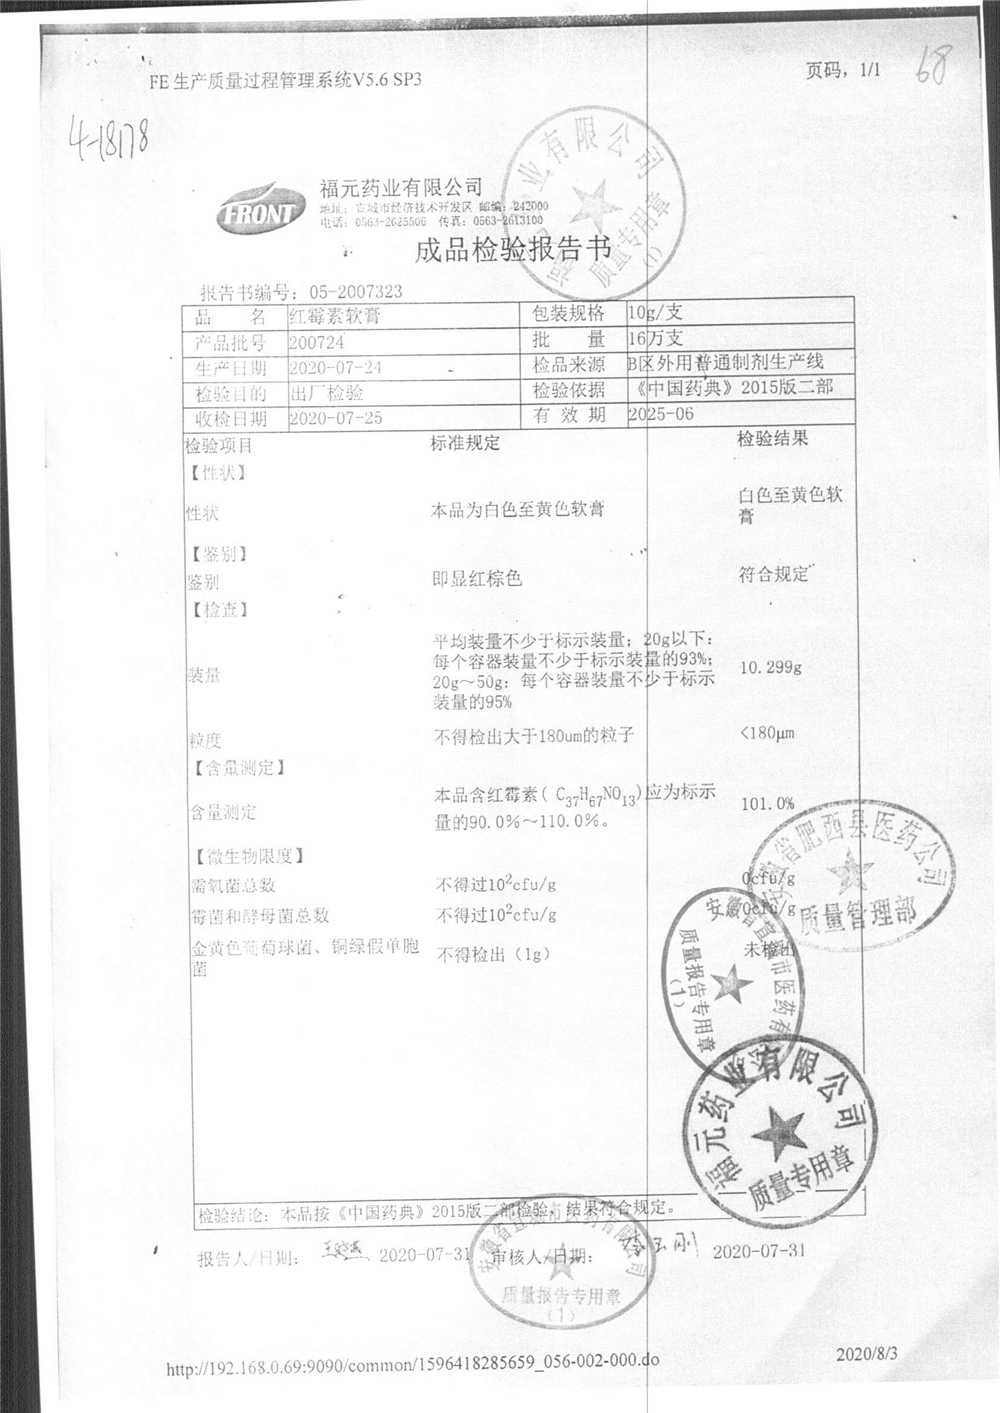 FE生产质量过程管理系统V5.6 SP3
页码，1/1
68
4-18178
FRONT
福元药业有限公司
地址：宣城市经济技术开发区 邮编：242000
电话：0563-2625506 传真：0563-2613100
成品检验报告书
报告书编号：05-2007323
品 名 红霉素软膏 包装规格 10g/支
产品批号 200724 批 量 16万支
生产日期 2020-07-24 检品来源 B区外用普通制剂生产线
检验目的 出厂检验 检验依据 《中国药典》2015版二部
收检日期 2020-07-25 有效期 2025-06
检验项目 标准规定 检验结果
【性状】
性状 本品为白色至黄色软膏 白色至黄色软
膏
【鉴别】
鉴别 即显红棕色 符合规定
【检查】
平均装量不少于标示装量；20g以下：
每个容器装量不少于标示装量的93%；
装量 20g～50g：每个容器装量不少于标示 10.299g
装量的95%
粒度 不得检出大于180um的粒子 <180μm
【含量测定】
含量测定 本品含红霉素( C37H67NO13)应为标示 101.0%
量的90.0%～110.0%。
【微生物限度】
需氧菌总数 不得过10²cfu/g 0cfu/g
霉菌和酵母菌总数 不得过10²cfu/g 0cfu/g
金黄色葡萄球菌、铜绿假单胞 不得检出（1g） 未检出
菌
检验结论：本品按《中国药典》2015版二部检验，结果符合规定。
报告人/日期： 2020-07-31 审核人/日期： 2020-07-31
业有限公司
质量专用章
(1)
安徽省肥西县医药公司
质量管理部
质量报告专用章
(1)
福元药业有限公司
质量专用章
质量报告专用章
(1)
http://192.168.0.69:9090/common/1596418285659_056-002-000.do
2020/8/3